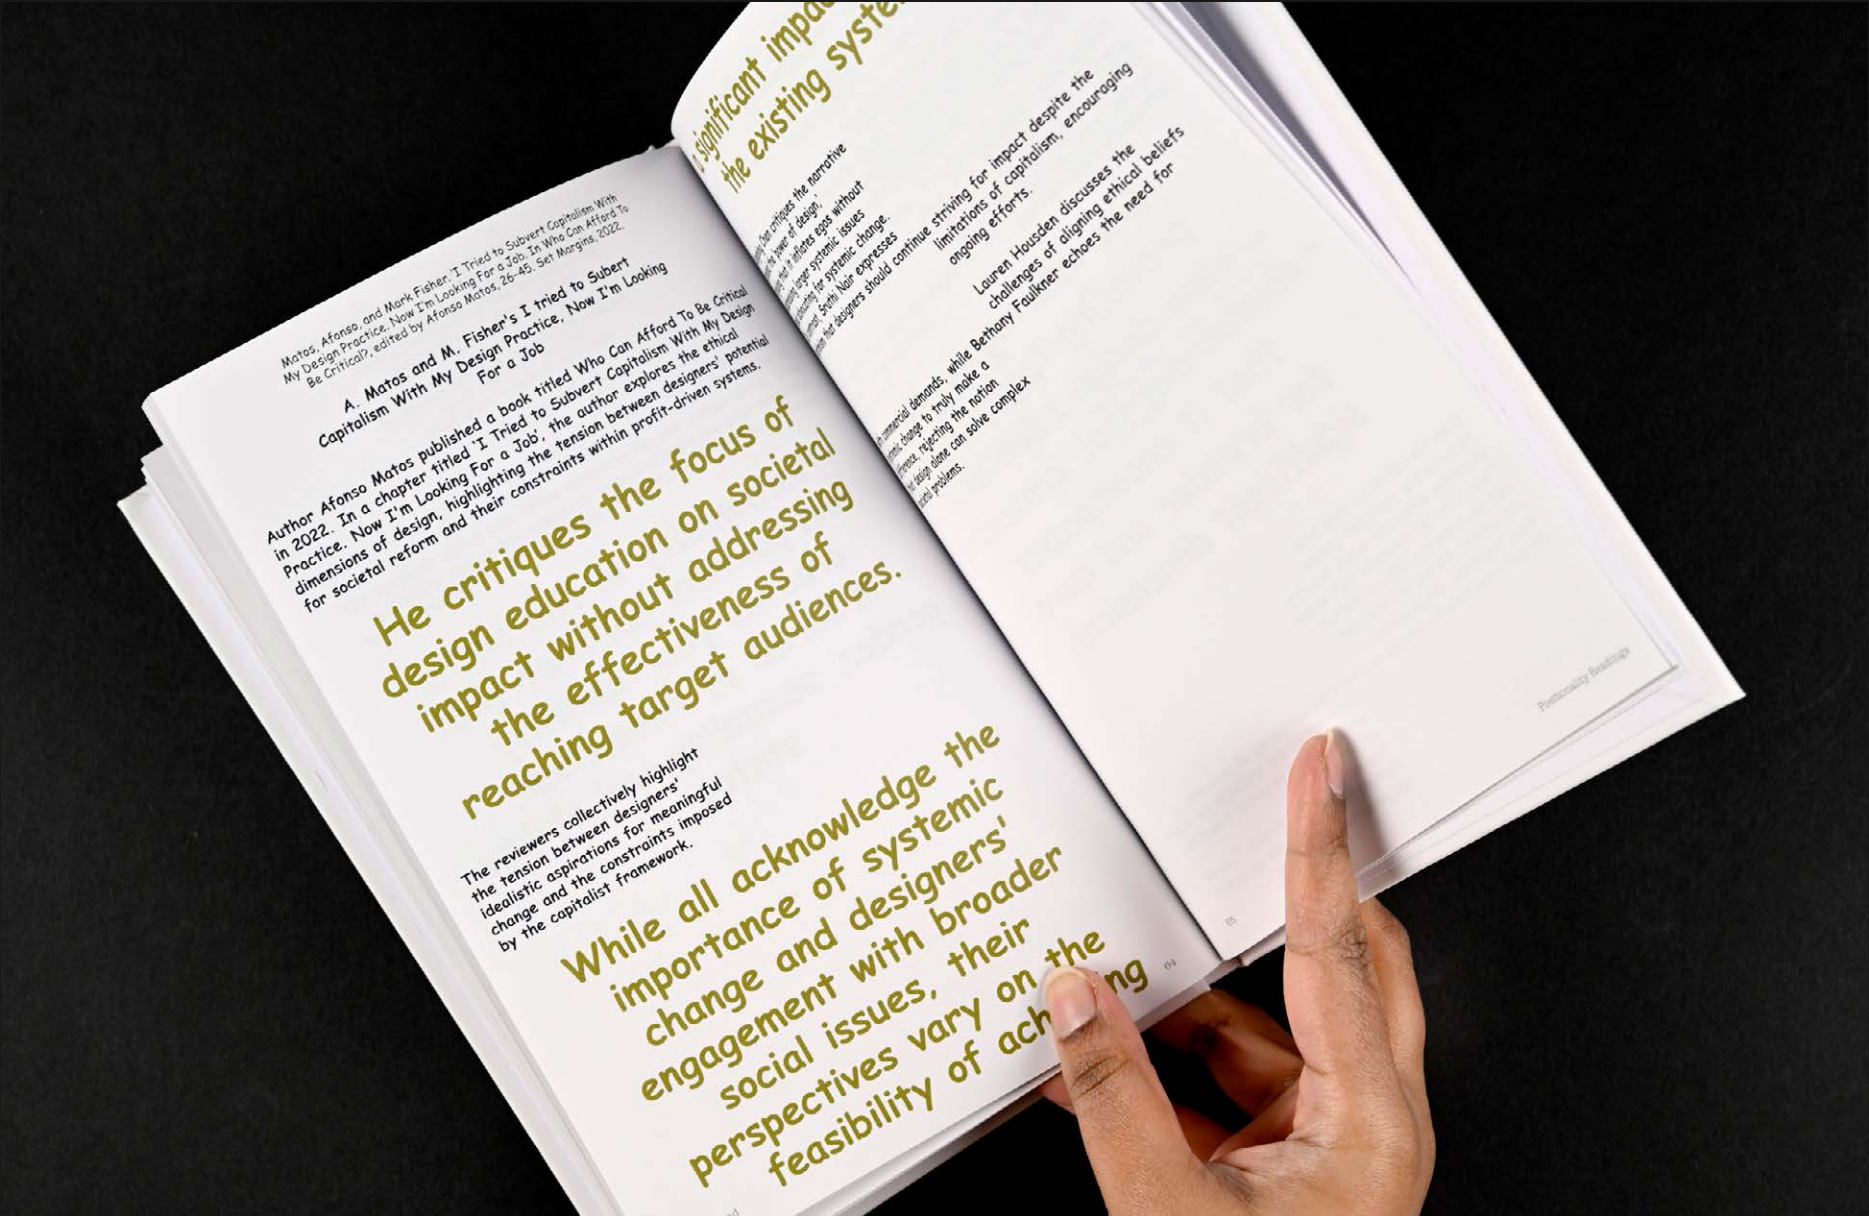 Matos, Afonso, and Mark Fisher. 'I Tried to Subvert Capitalism With
My Design Practice. Now I'm Looking For a Job. In Who Can Afford To
Be Critical?, edited by Afonso Matos, 26-45. Set Margins, 2022.
A. Matos and M. Fisher's I tried to Subert
Capitalism With My Design Practice, Now I'm Looking
For a Job
Author Afonso Matos published a book titled Who Can Afford To Be Critical
in 2022. In a chapter titled 'I Tried to Subvert Capitalism With My Design
Practice. Now I'm Looking For a Job', the author explores the ethical
dimensions of design, highlighting the tension between designers' potential
for societal reform and their constraints within profit-driven systems.
He critiques the focus of
design education on societal
impact without addressing
the effectiveness of
reaching target audiences.
The reviewers collectively highlight
the tension between designers'
idealistic aspirations for meaningful
change and the constraints imposed
by the capitalist framework.
While all acknowledge the
importance of systemic
change and designers'
engagement with broader
social issues, their
perspectives vary on the
feasibility of
64
significant
the existing
critiques the narrative
the power of design,'
that it inflates egos without
larger systemic issues
for systemic change.
Sruthi Nair expresses
that designers should continue striving for impact despite the
limitations of capitalism, encouraging
ongoing efforts.
Lauren Housden discusses the
challenges of aligning ethical beliefs
commercial demands, while Bethany Faulkner echoes the need for
change to truly make a
rejecting the notion
design alone can solve complex
problems.
Positionality Readings
65